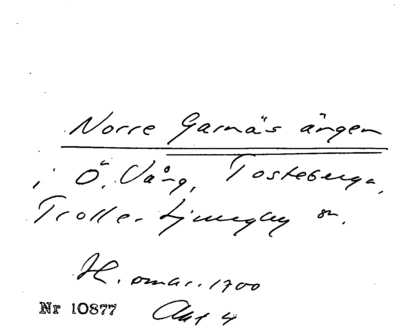 Norre Garnäs ängen
i Ö. Vång, Tosteberga,
Trolle-Ljungby sn.
H. omar. 1700
Nr 10877 Akt 4